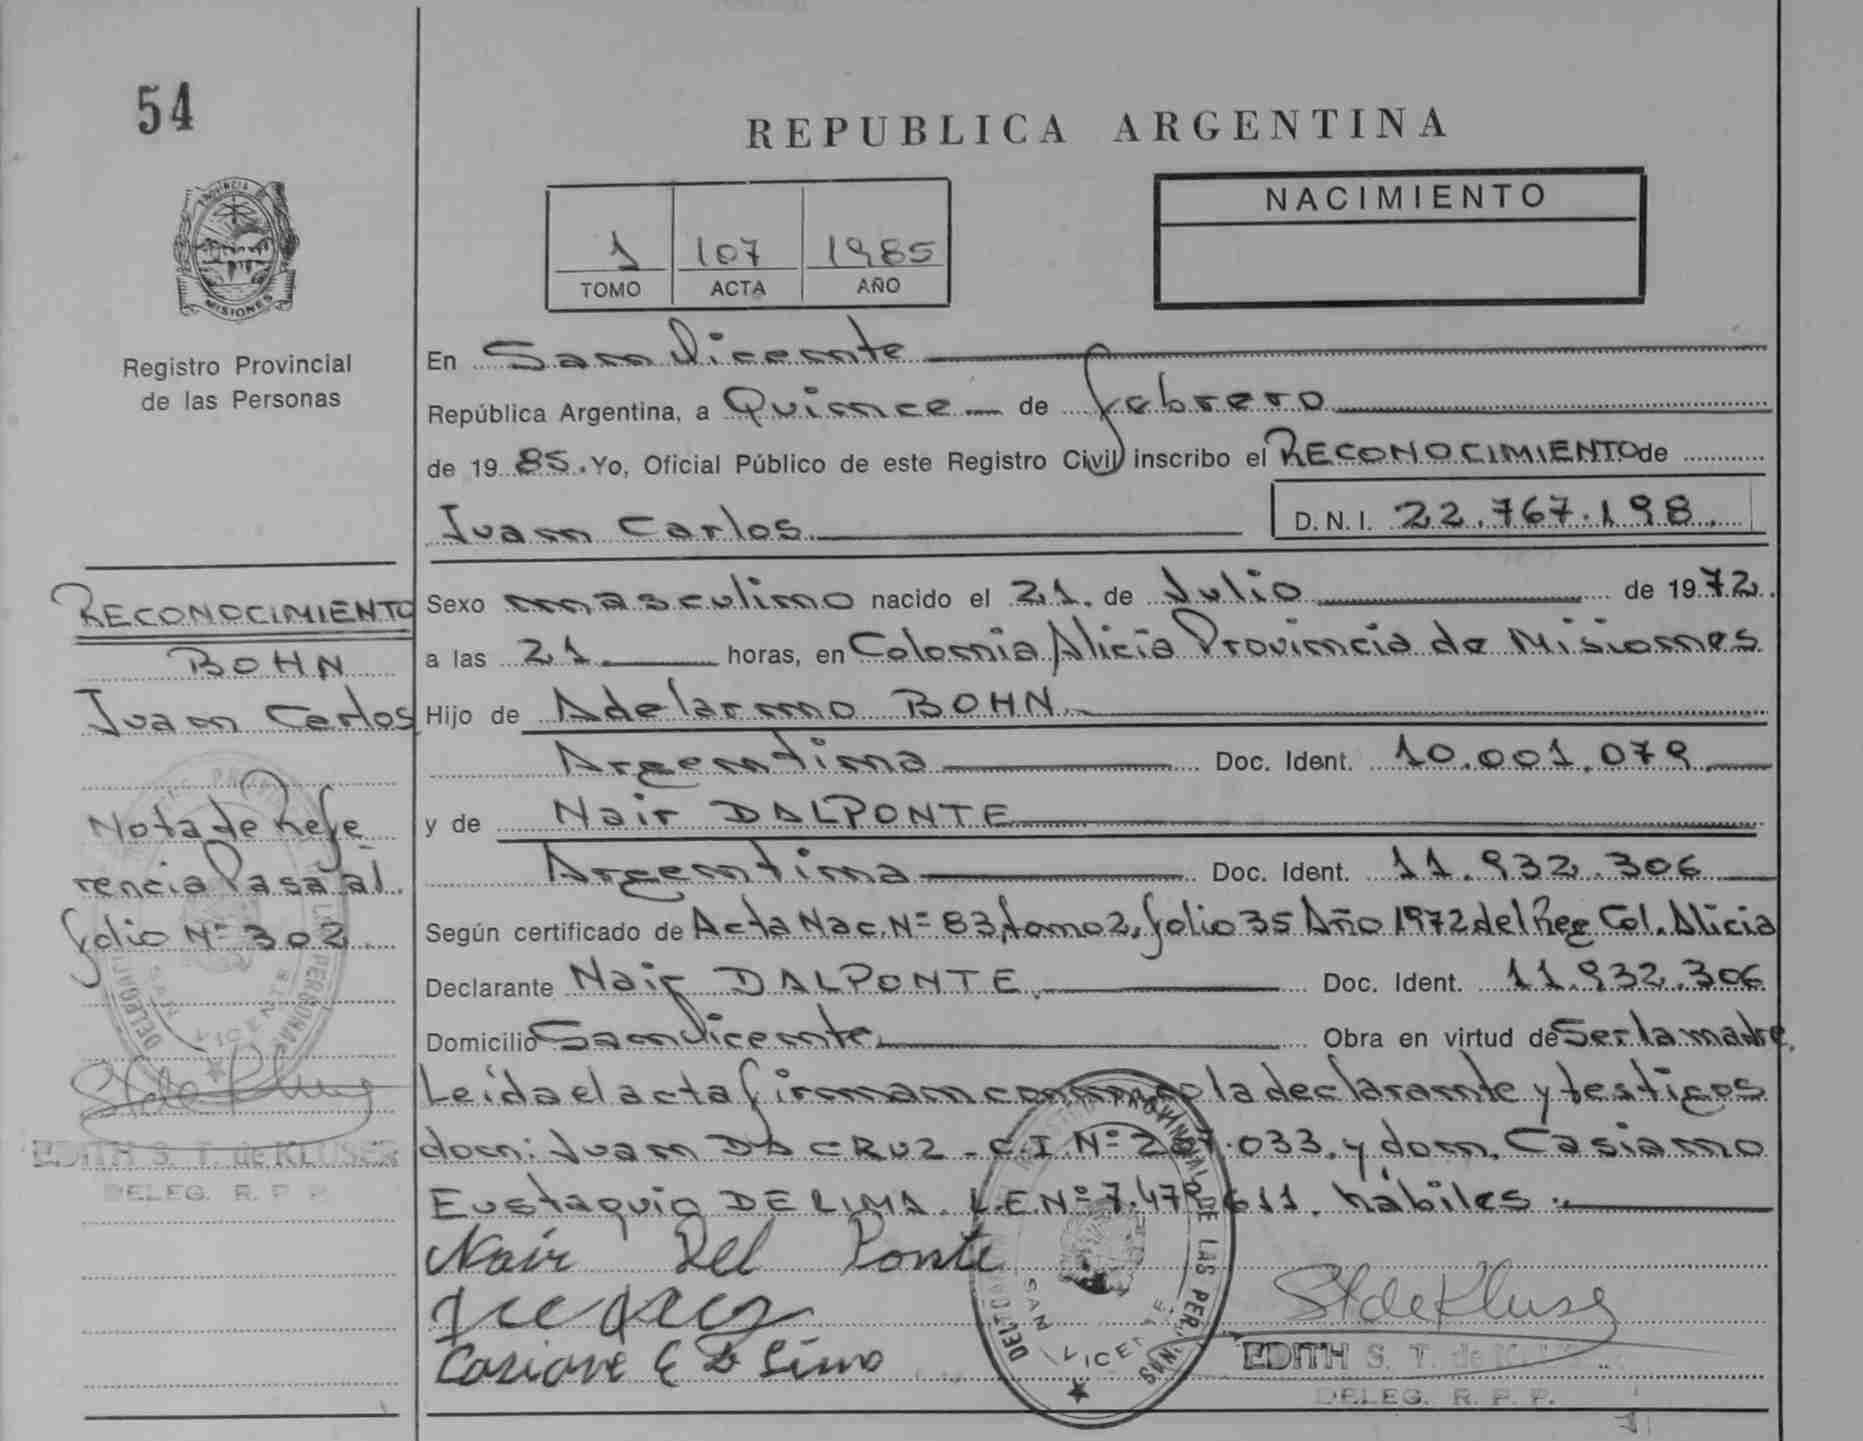 54
REPUBLICA ARGENTINA
NACIMIENTO
1 107 1985
TOMO ACTA AÑO
PROVINCIA
MISIONES
Registro Provincial
de las Personas
En San Vicente
República Argentina, a Quince de febrero
de 1985. Yo, Oficial Público de este Registro Civil inscribo el RECONOCIMIENTO de
Juan Carlos D.N.I. 22.767.198.
Sexo masculino nacido el 21. de Julio de 1972.
a las 21 horas, en Colonia Alicia Provincia de Misiones
Hijo de Adelarmo BOHN
Argentina Doc. Ident. 10.001.079.
y de Nair DALPONTE
Argentina Doc. Ident. 11.932.306
Según certificado de Acta Nac. Nº 83, tomo 2, folio 35 Año 1972 del Reg Col. Alicia
Declarante Nair DALPONTE. Doc. Ident. 11.932.306
Domicilio San Vicente Obra en virtud de Ser la madre.
Leída el acta firman conmigo la declarante y testigos
don: Juan DA CRUZ - C.I. Nº 033. y don. Casiano
Eustaquio DE LIMA. L.E. Nº 7.47 611. hábiles
Nair Del Ponte
Casiano E D Lima
St de Kluse
EDITH S. T. de
DELEG. R. P. P.
RECONOCIMIENTO
BOHN
Juan Carlos
Nota de Refe
rencia Pasa al
folio Nº 302
St de Kluse
EDITH S. T. de KLUSER
DELEG. R. P. P.
SAN VICENTE